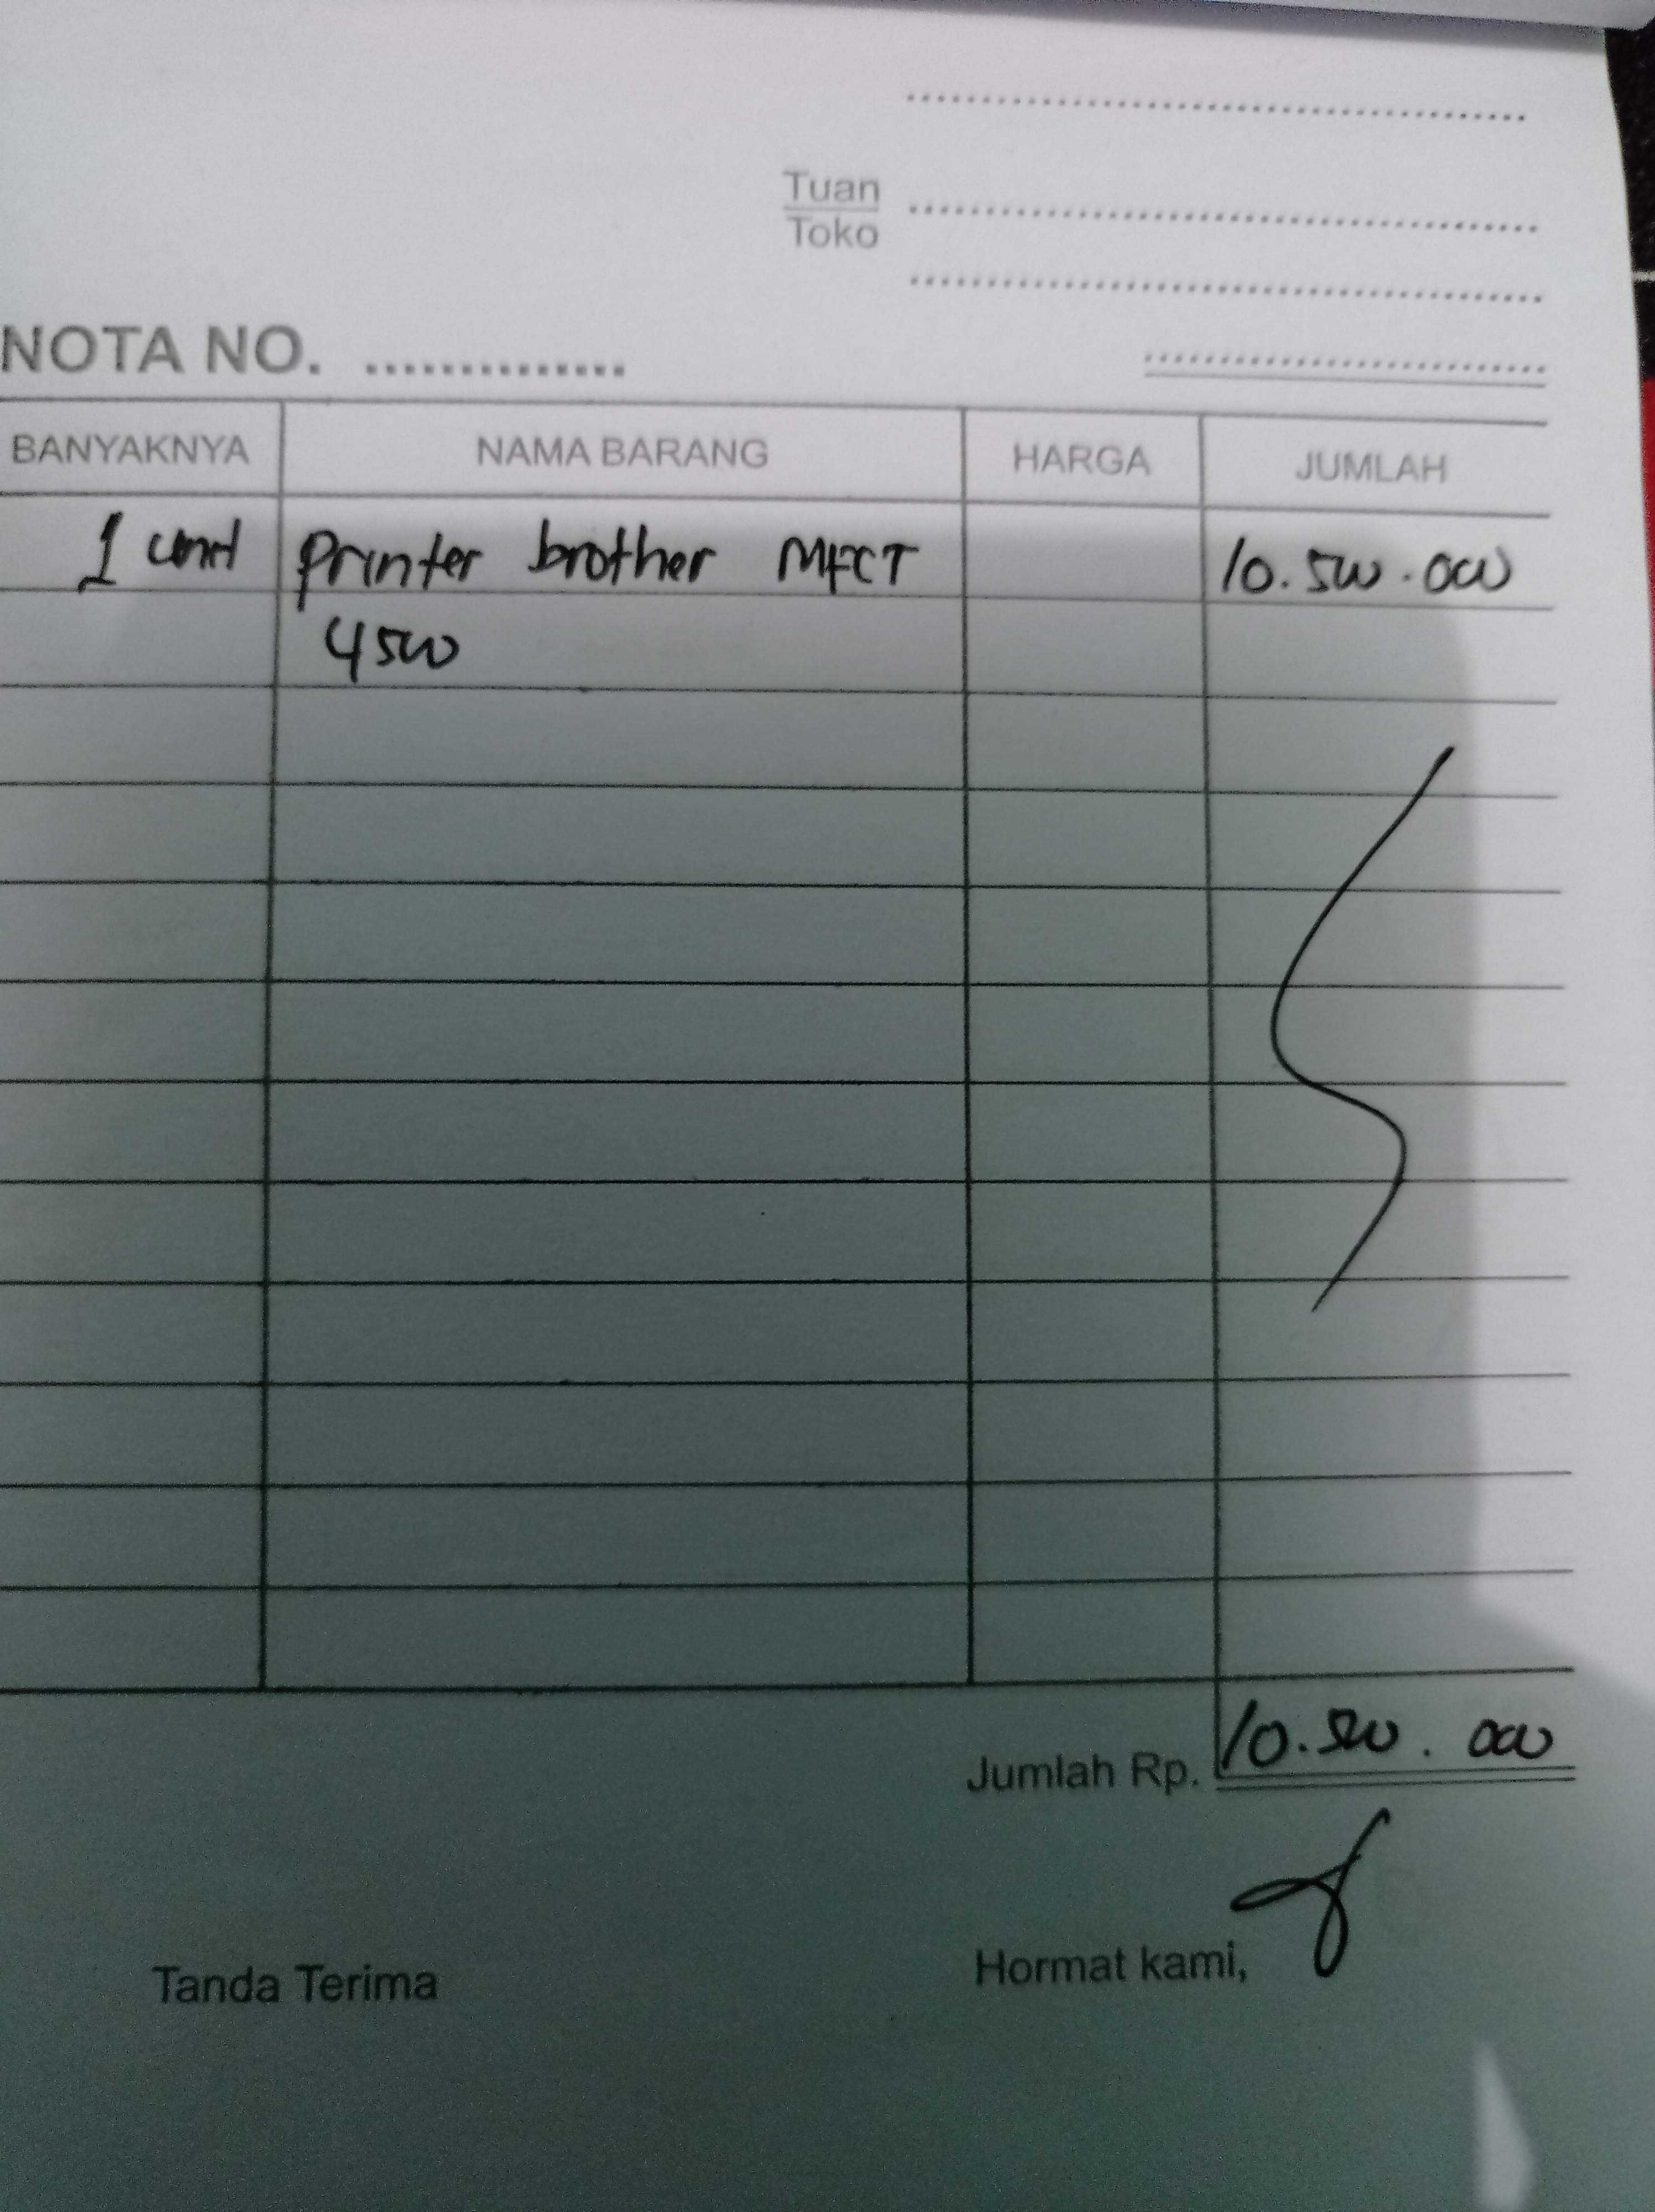 Tuan
Toko
NOTA NO. ..............
BANYAKNYA NAMA BARANG HARGA JUMLAH
1 unit Printer brother MFCT 10.500.000
4500
Jumlah Rp. 10.500.000
Tanda Terima Hormat kami,